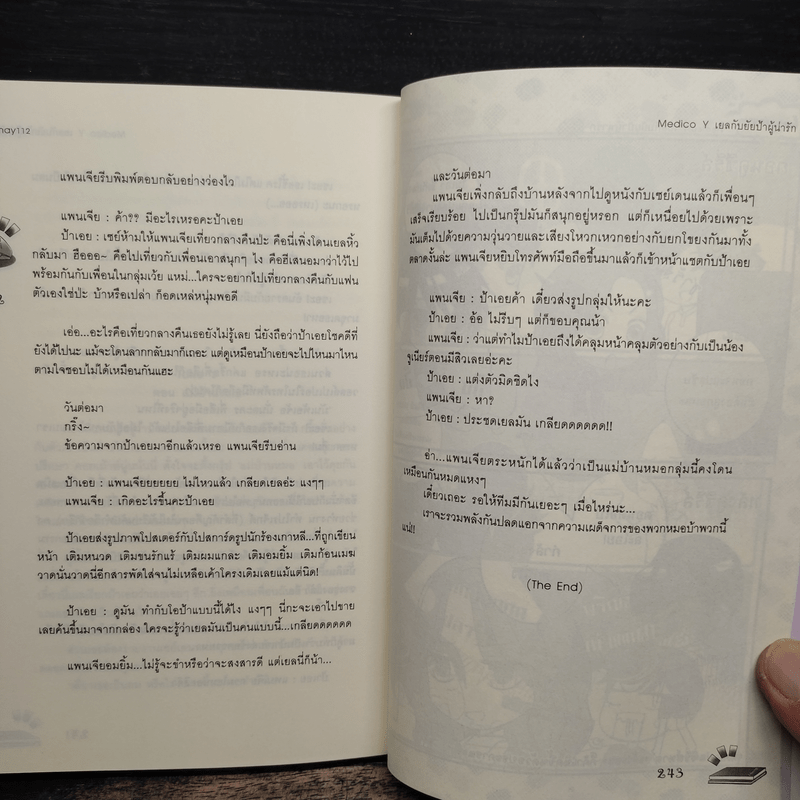 may112
แพนเจียรีบพิมพ์ตอบกลับอย่างว่องไว
แพนเจีย : ค้า?? มีอะไรเหรอคะป้าเอย
ป้าเอย : เซย์ห้ามให้แพนเจียเที่ยวกลางคืนป่ะ คือนี่เพิ่งโดนเยลหิ้ว
กลับมา ฮือออ~ คือไปเที่ยวกับเพื่อนเอาสนุกๆ ไง คือฮีเสนอมาว่าไว้ไป
พร้อมกันกับเพื่อนในกลุ่มเว้ย แหม่...ใครจะอยากไปเที่ยวกลางคืนกับแฟน
ตัวเองใช่ป่ะ บ้าหรือเปล่า ก็อดเหล่หนุ่มพอดี
เอ่อ...อะไรคือเที่ยวกลางคืนเธอยังไม่รู้เลย นี่ยังถือว่าป้าเอยโชคดีที่
ยังได้ไปนะ แม้จะโดนลากกลับมาก็เถอะ แต่ดูเหมือนป้าเอยจะไปไหนมาไหน
ตามใจชอบไม่ได้เหมือนกันแฮะ
วันต่อมา
กริ๊ง~
ข้อความจากป้าเอยมาอีกแล้วเหรอ แพนเจียรีบอ่าน
ป้าเอย : แพนเจียยยยย ไม่ไหวแล้ว เกลียดเยลอ่ะ แงๆๆ
แพนเจีย : เกิดอะไรขึ้นคะป้าเอย
ป้าเอยส่งรูปภาพโปสเตอร์กับโปสการ์ดรูปนักร้องเกาหลี...ที่ถูกเขียน
หน้า เติมหนวด เติมขนรักแร้ เติมผมแกละ เติมอมยิ้ม เติมก้อนเมฆ
วาดนั่นวาดนี่อีกสารพัดใส่จนไม่เหลือเค้าโครงเดิมเลยแม้แต่นิด!
ป้าเอย : ดูมัน ทำกับโอป้าแบบนี้ได้ไง แงๆๆ นี่กะจะเอาไปขาย
เลยค้นขึ้นมาจากกล่อง ใครจะรู้ว่าเยลมันเป็นคนแบบนี้...เกลียดดดดด
แพนเจียอมยิ้ม...ไม่รู้จะขำหรือว่าจะสงสารดี แต่เยลนี่ก็น้า...
Medico Y เยลกับยัยป้าผู้น่ารัก
และวันต่อมา
แพนเจียเพิ่งกลับถึงบ้านหลังจากไปดูหนังกับเซย์เดนแล้วก็เพื่อนๆ
เสร็จเรียบร้อย ไปเป็นกรุ๊ปมันก็สนุกอยู่หรอก แต่ก็เหนื่อยไปด้วยเพราะ
มันเต็มไปด้วยความวุ่นวายและเสียงโหวกเหวกอย่างกับยกโขยงกันมาทั้ง
ตลาดงั้นล่ะ แพนเจียหยิบโทรศัพท์มือถือขึ้นมาแล้วก็เข้าหน้าแชตกับป้าเอย
แพนเจีย : ป้าเอยค้า เดี๋ยวส่งรูปกลุ่มให้นะคะ
ป้าเอย : อ้อ ไม่รีบๆ แต่ก็ขอบคุณน้า
แพนเจีย : ว่าแต่ทำไมป้าเอยถึงได้คลุมหน้าคลุมตัวอย่างกับเป็นน้อง
จูเนียร์ตอนมีสิวเลยอ่ะคะ
ป้าเอย : แต่งตัวมิดชิดไง
แพนเจีย : หา?
ป้าเอย : ประชดเยลมัน เกลียดดดดดด!!
อ่า...แพนเจียตระหนักได้แล้วว่าเป็นแม่บ้านหมอกลุ่มนี้คงโดน
เหมือนกันหมดแหงๆ
เดี๋ยวเถอะ รอให้ทีมมีกันเยอะๆ เมื่อไหร่นะ...
เราจะรวมพลังกันปลดแอกจากความเผด็จการของพวกหมอบ้าพวกนี้
แน่!!
(The End)
243